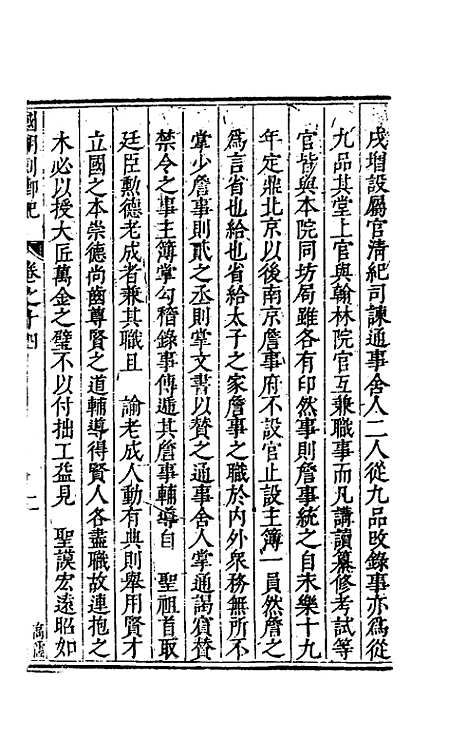 戌增設屬官清紀司諫通事舍人二人從九品改錄事亦爲從
九品其堂上官與翰林院官互兼職事而凡講讀纂修考試等
官皆與本院同坊局雖各有印然事則詹事統之自永樂十九
年定鼎北京以後南京詹事府不設官止設主簿一員然詹之
爲言省也給也省給太子之家詹事之職於內外衆務無所不
掌少詹事則貳之丞則掌文書以贊之通事舍人掌通謁賓贊
禁令之事主簿掌勾稽錄事傳遞其詹事輔導自　聖祖首取
廷臣勲德老成者兼其職且　諭老成人動有典則舉用賢才
立國之本崇德尚齒尊賢之道輔導得賢人各盡職故連抱之
木必以授大匠萬金之璧不以付拙工益見　聖謨宏遠昭如
國朝列卿紀　卷之十四
二